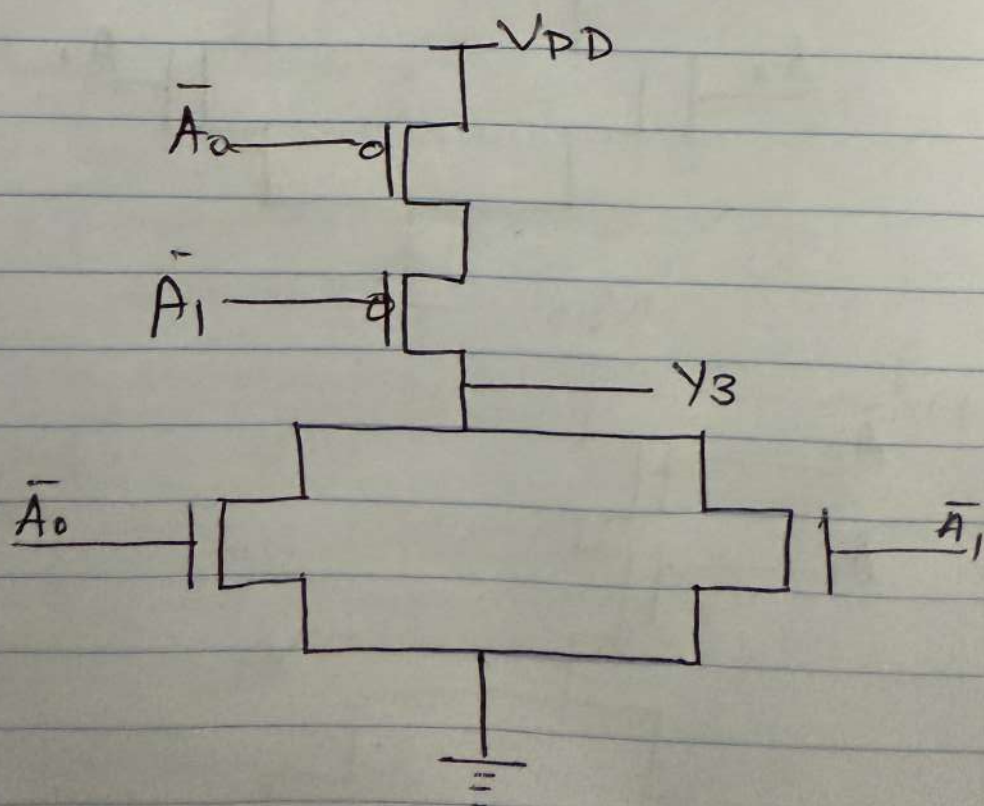 VDD
A̅0
A̅1
Y3
A̅0
A̅1